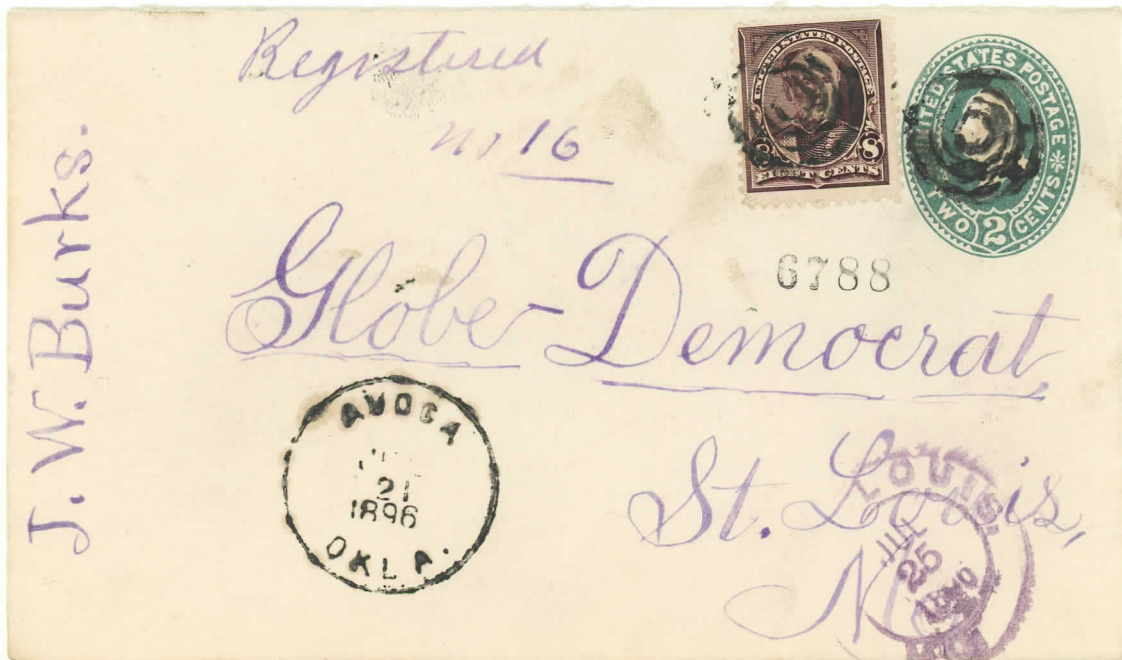 Registered
No 16
UNITED STATES POSTAGE
8 8
EIGHT CENTS
UNITED STATES POSTAGE
TWO 2 CENTS
6788
J. W. Burks.
Globe-Democrat
St. Louis,
Mo
AVOCA
21
1896
OKLA.
LOUIS.
JUL
25